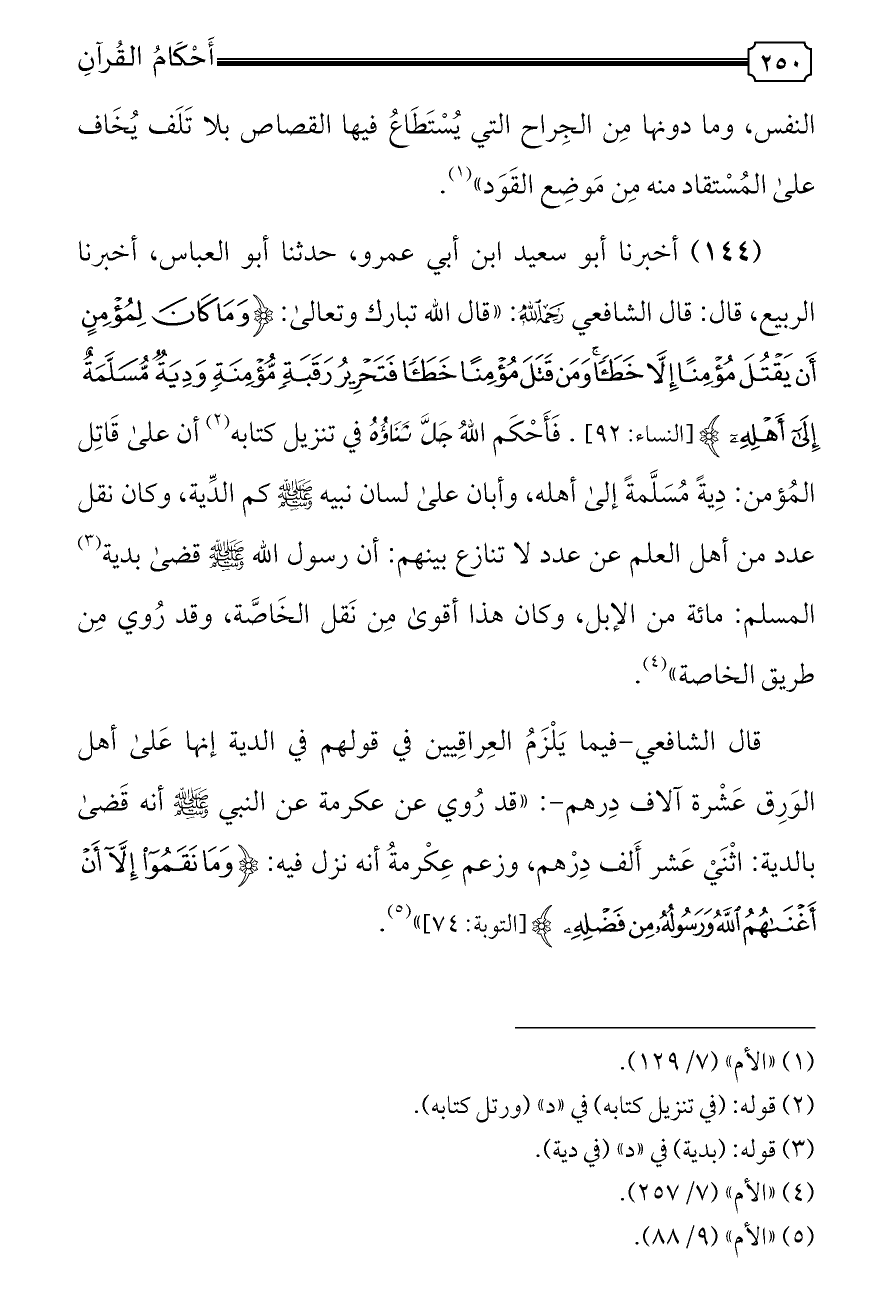 ٢٥٠ أَحْكَامُ القُرآنِ
النفس، وما دونها مِن الجِراح التي يُسْتَطَاعُ فيها القصاص بلا تَلَف يُخَاف
علىٰ المُسْتقاد منه مِن مَوضِع القَوَد»(١).
(١٤٤) أخبرنا أبو سعيد ابن أبي عمرو، حدثنا أبو العباس، أخبرنا
الربيع، قال: قال الشافعي رَحِمَهُ اللَّهُ: «قال الله تبارك وتعالىٰ: ﴿وَمَا كَانَ لِمُؤْمِنٍ
أَن يَقْتُلَ مُؤْمِنًا إِلَّا خَطَـًٔا ۚ وَمَن قَتَلَ مُؤْمِنًا خَطَـًٔا فَتَحْرِيرُ رَقَبَةٍ مُّؤْمِنَةٍ وَدِيَةٌ مُّسَلَّمَةٌ
إِلَىٰٓ أَهْلِهِۦٓ ﴾ [النساء: ٩٢] . فَأَحْكَم اللهُ جَلَّ ثَنَاؤُهُ في تنزيل كتابه(٢) أن علىٰ قَاتِل
المُؤمن: دِيةً مُسَلَّمةً إلىٰ أهله، وأبان علىٰ لسان نبيه ﷺ كم الدِّية، وكان نقل
عدد من أهل العلم عن عدد لا تنازع بينهم: أن رسول الله ﷺ قضىٰ بدية(٣)
المسلم: مائة من الإبل، وكان هذا أقوىٰ مِن نَقل الخَاصَّة، وقد رُوي مِن
طريق الخاصة»(٤).
قال الشافعي-فيما يَلْزَمُ العِراقِيين في قولهم في الدية إنها عَلىٰ أهل
الوَرِق عَشْرة آلاف دِرهم-: «قد رُوي عن عكرمة عن النبي ﷺ أنه قَضىٰ
بالدية: اثْنَيْ عَشر أَلف دِرْهم، وزعم عِكْرمةُ أنه نزل فيه: ﴿وَمَا نَقَمُوٓا۟ إِلَّآ أَنْ
أَغْنَىٰهُمُ ٱللَّهُ وَرَسُولُهُۥ مِن فَضْلِهِۦ ﴾ [التوبة: ٧٤]»(٥).
(١) «الأم» (٧/ ١٢٩).
(٢) قوله: (في تنزيل كتابه) في «د» (ورتل كتابه).
(٣) قوله: (بدية) في «د» (في دية).
(٤) «الأم» (٧/ ٢٥٧).
(٥) «الأم» (٩/ ٨٨).